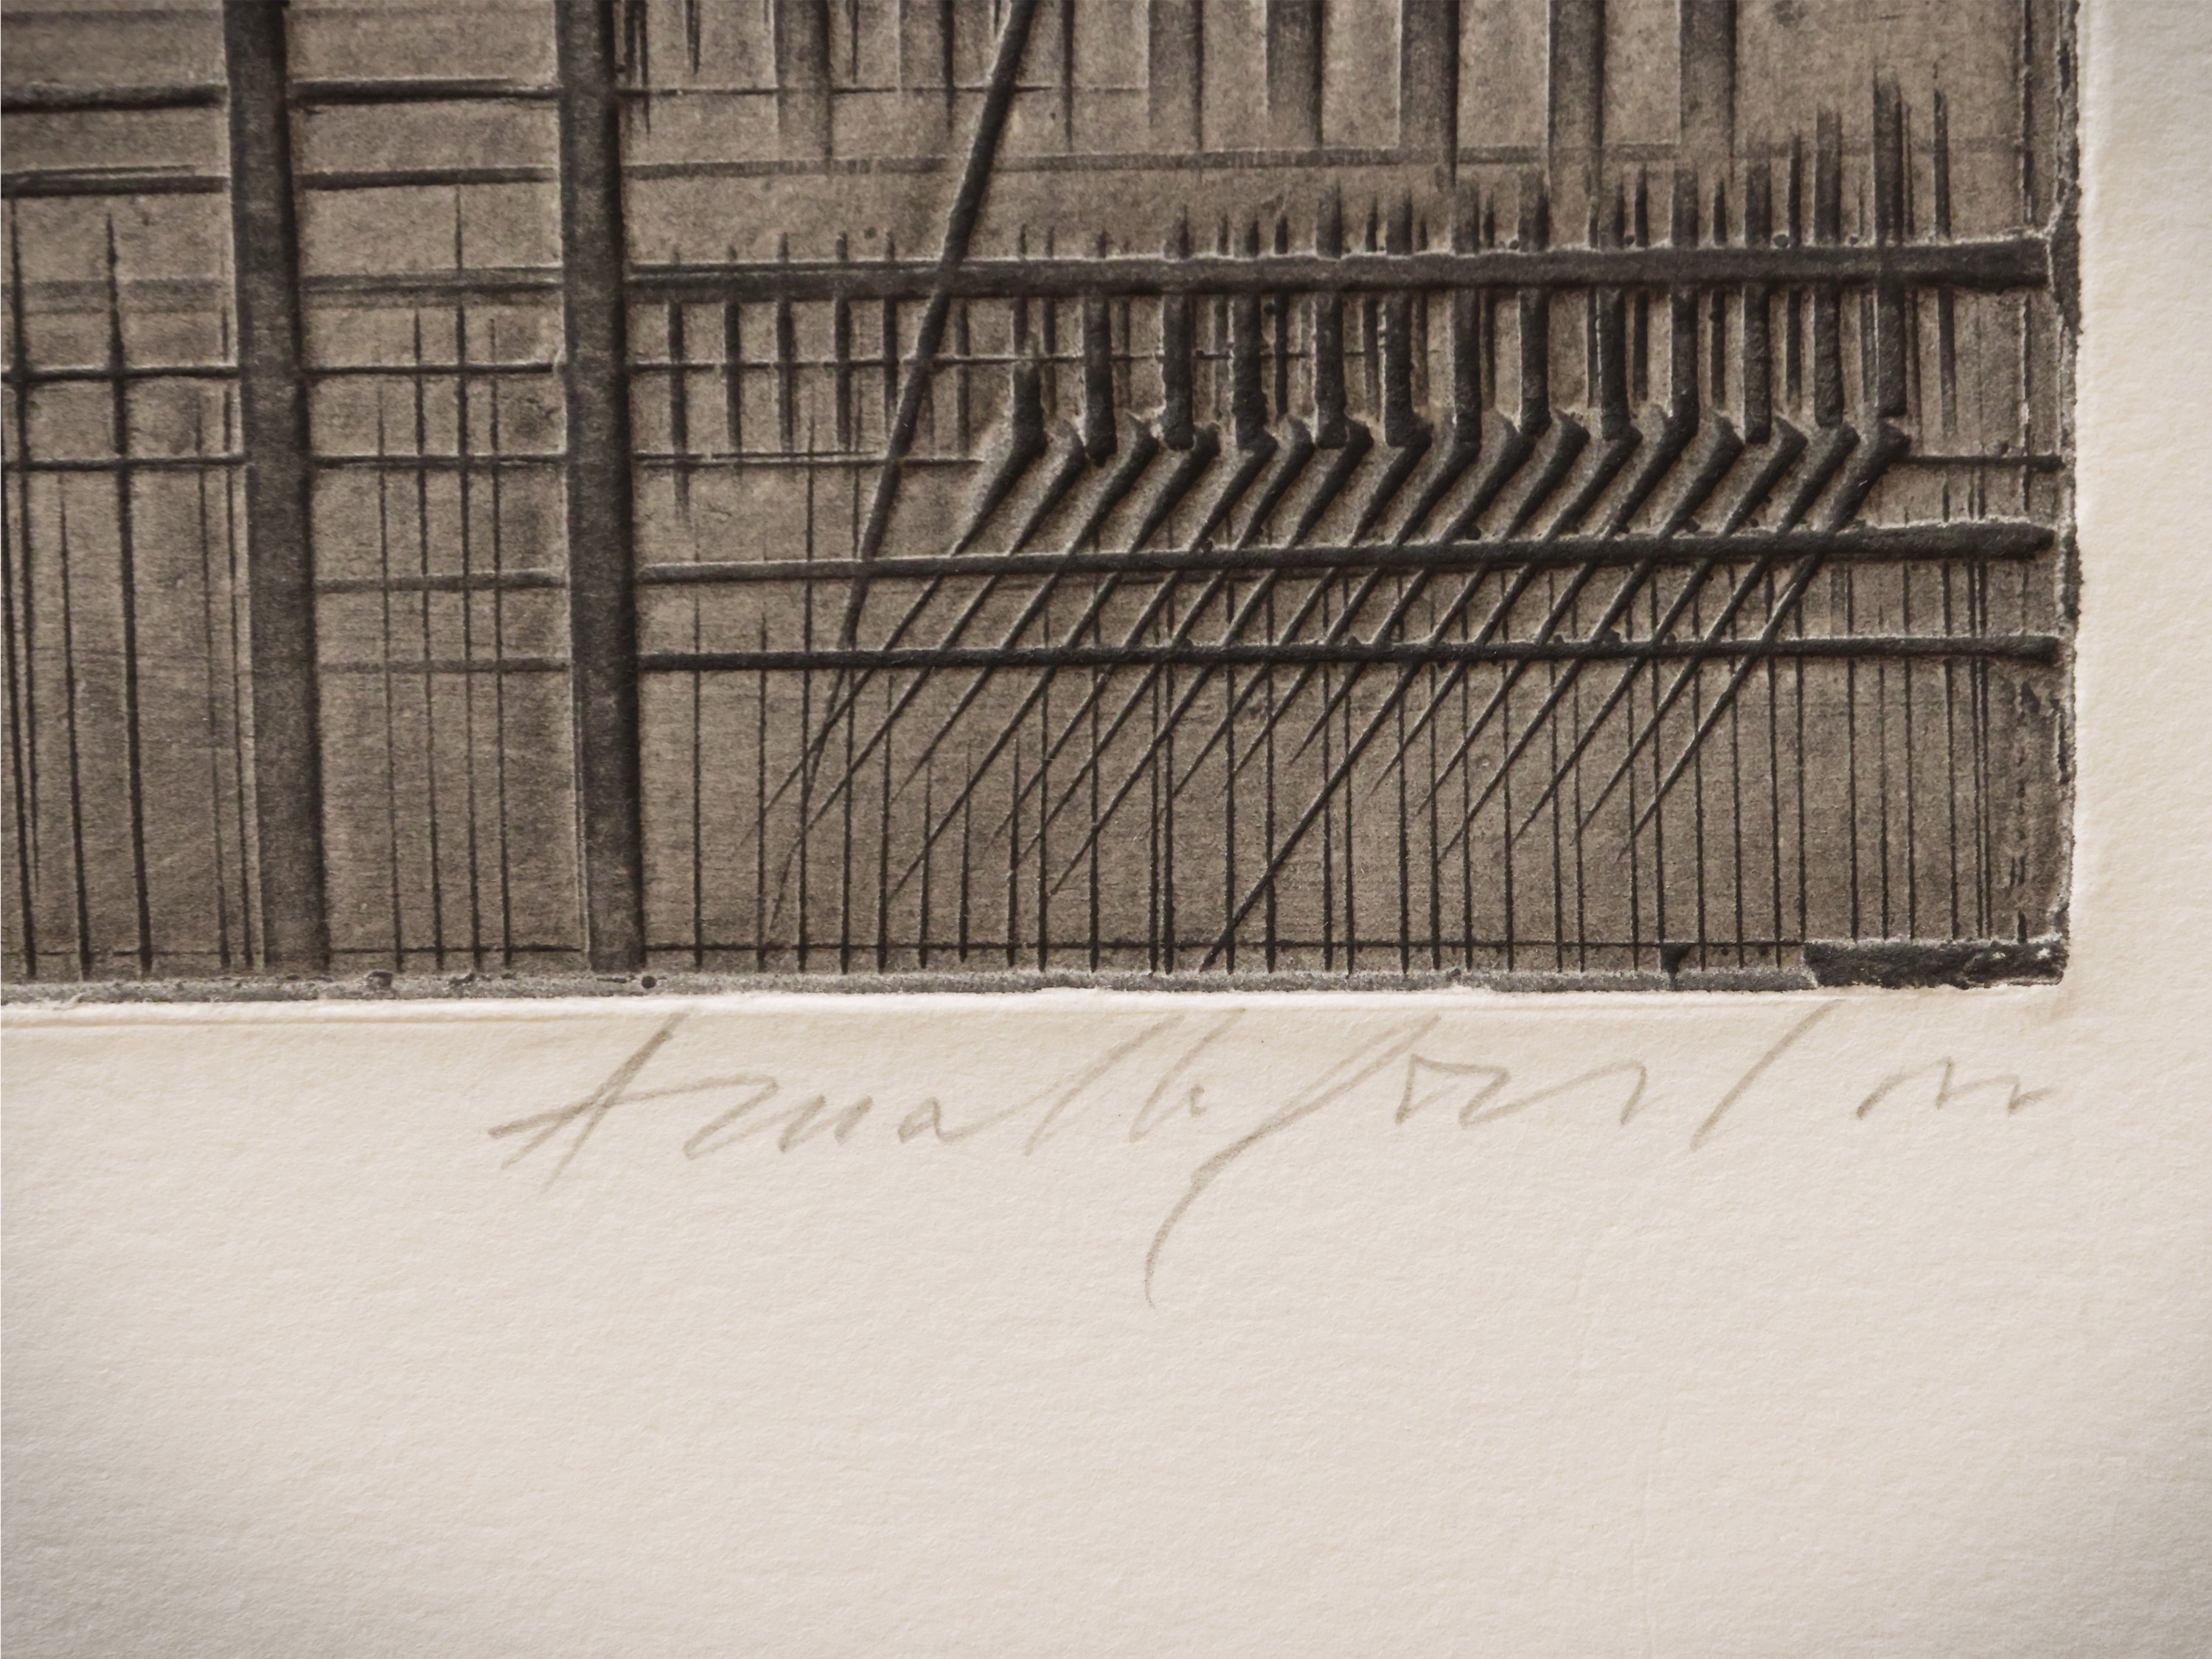 Arnaldo Pomodoro